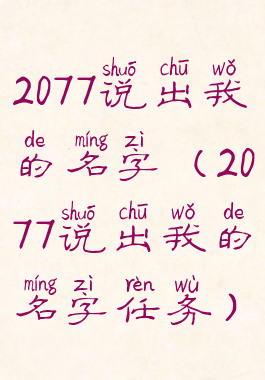 shuō chū wǒ
2077说出我
de míng zì
的名字（20
shuō chū wǒ de
77说出我的
míng zì rèn wù
名字任务）